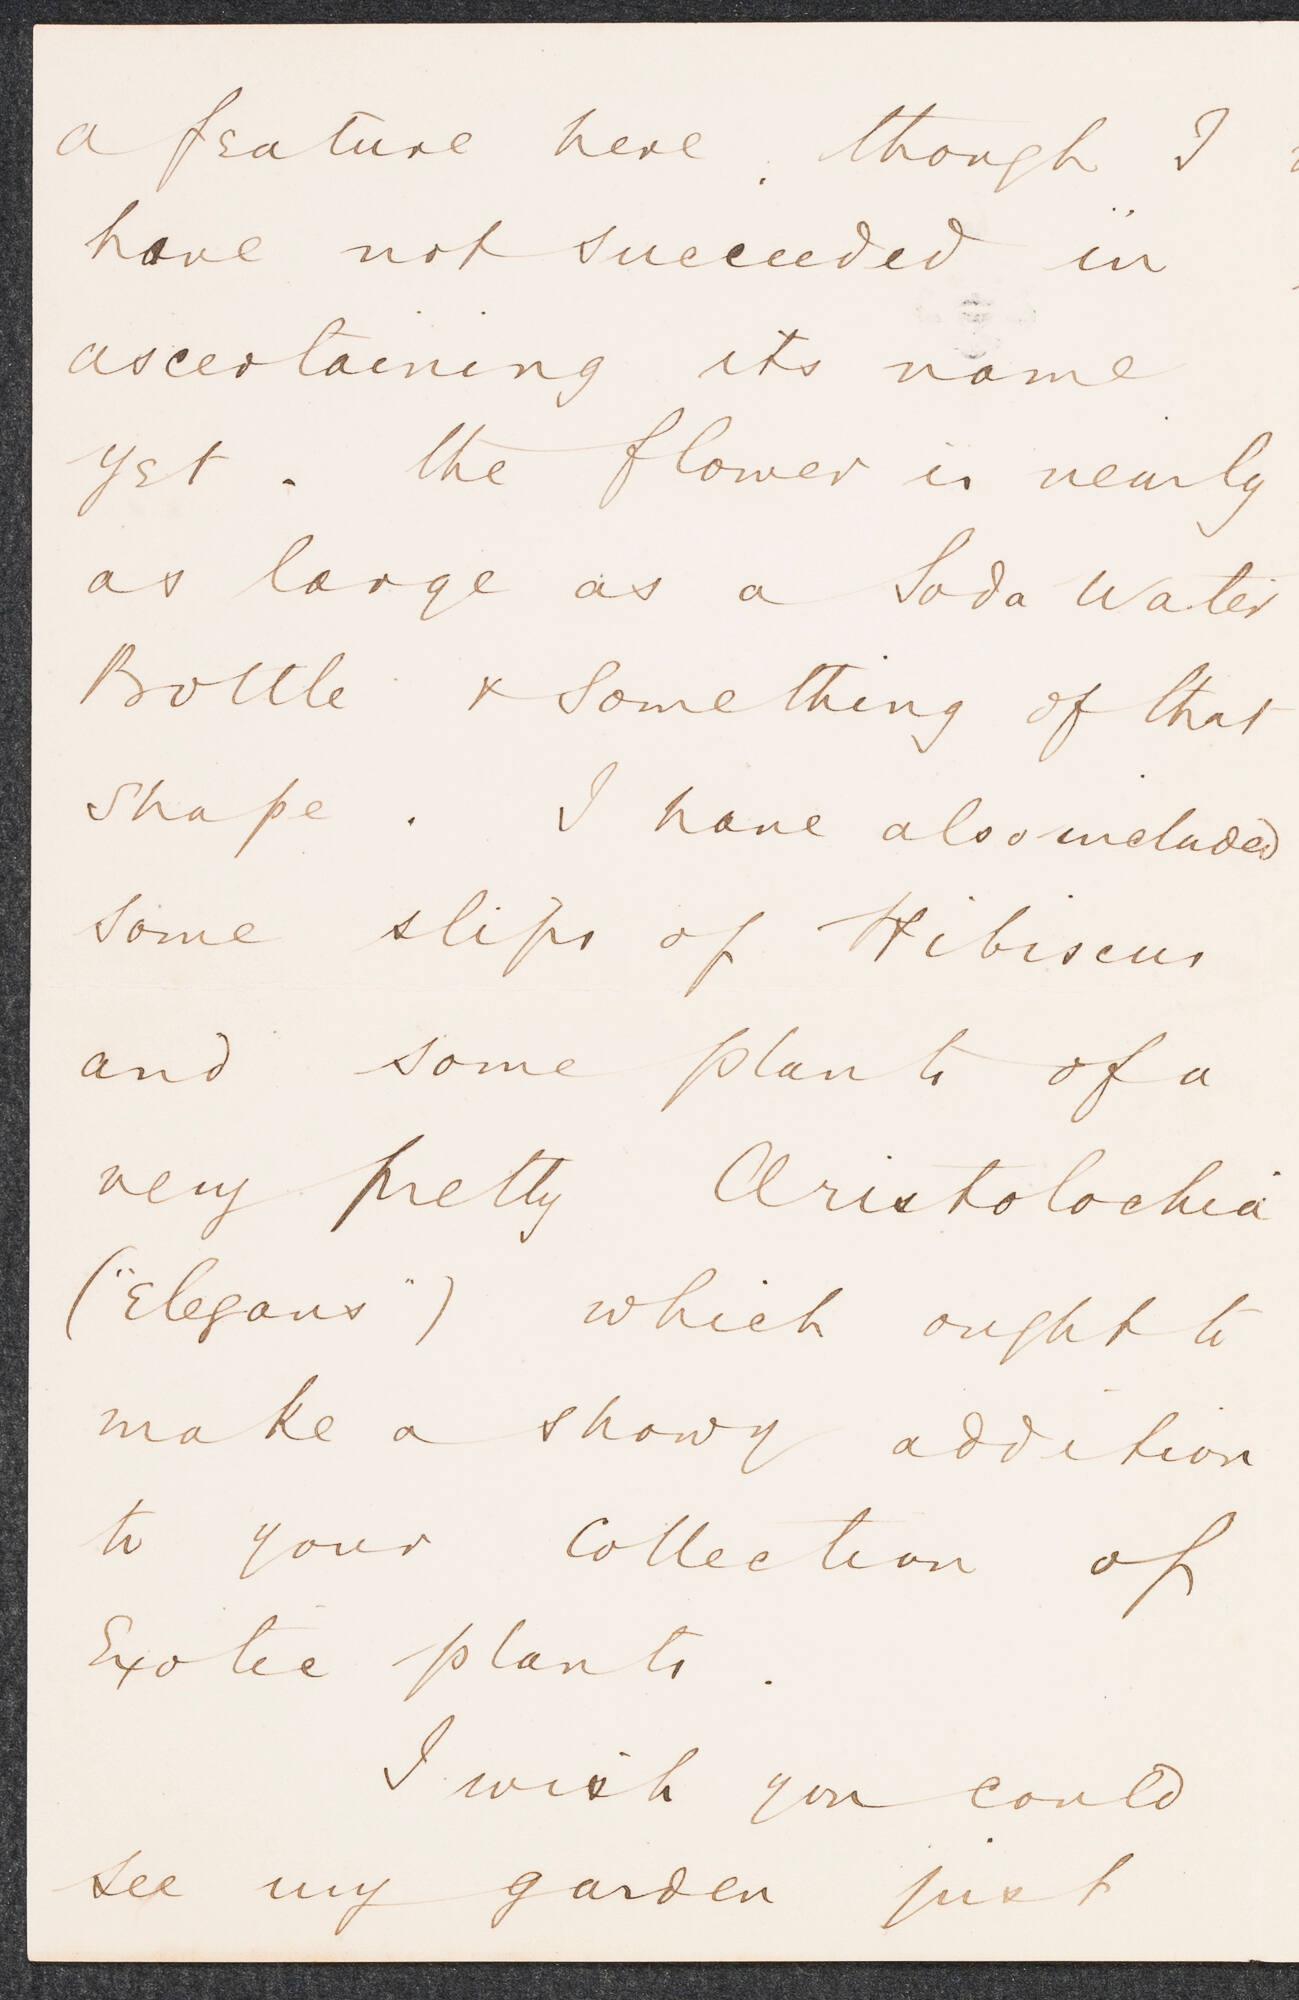 a feature here. though I
have not succeeded in
ascertaining its name
yet. the flower is nearly
as large as a Soda Water
Bottle & something of that
shape. I have also included
some slips of Hibiscus
and some plants of a
very pretty Aristolochia
("Elegans") which ought to
make a showy addition
to your Collection of
Exotic plants.
I wish you could
see my garden just